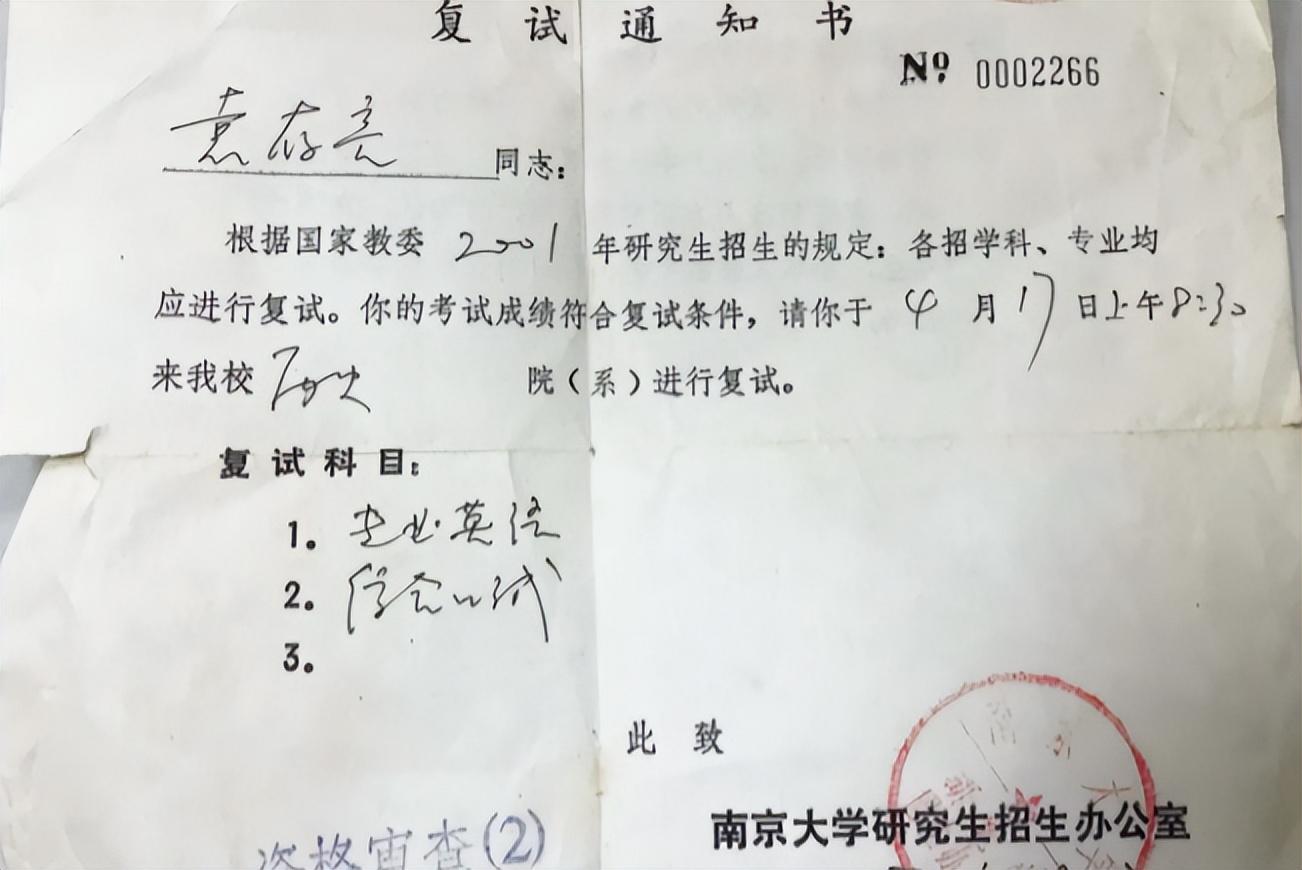 复试通知书
№ 0002266
袁存亮 同志：
根据国家教委 2001 年研究生招生的规定：各招学科、专业均
应进行复试。你的考试成绩符合复试条件，请你于 4 月 17 日上午8:30
来我校 历史 院（系）进行复试。
复试科目：
1。专业英语
2。综合口试
3。
此致
南京大学研究生招生办公室
资格审查(2)